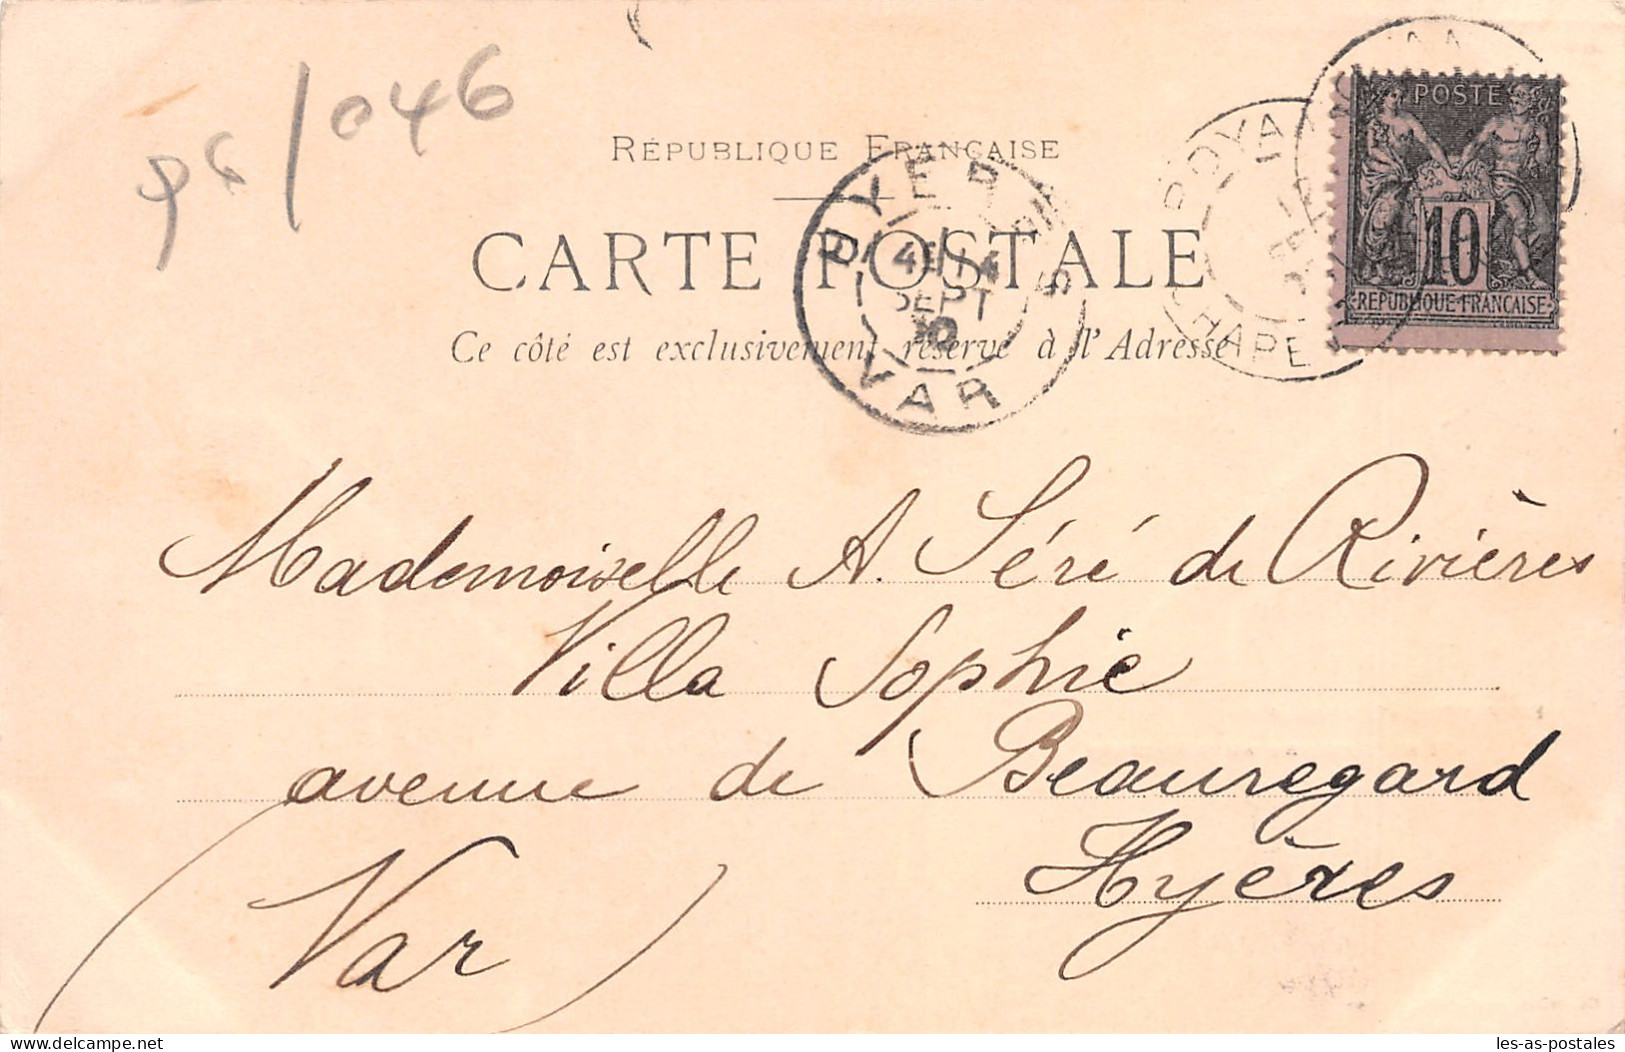 96/046
RÉPUBLIQUE FRANÇAISE
CARTE POSTALE
Ce côté est exclusivement réservé à l'Adresse
HYÈRES
4E 14
SEPT
VAR
POSTE
10
REPUBLIQUE FRANÇAISE
Mademoiselle A. Séré de Rivières
Villa Sophie
avenue de Beauregard
Hyères
(Var)
www.delcampe.net
les-as-postales